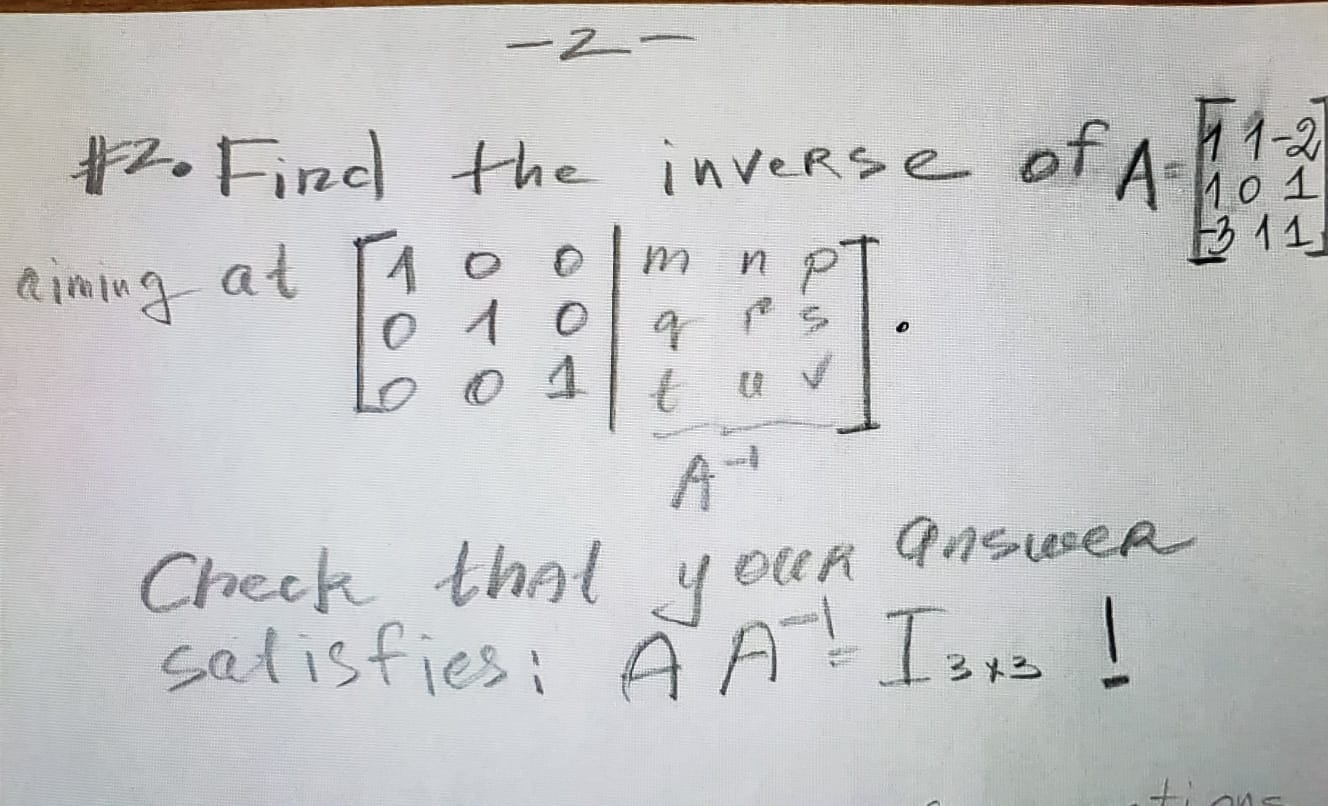 -2-
#2. Find the inverse of A=[1 1 -2
1 0 1
-3 1 1]
aiming at [1 0 0 | m n p
0 1 0 | q r s
0 0 1 | t u v].
A⁻¹
Check that your answer
satisfies: A A⁻¹ = I₃ₓ₃ !